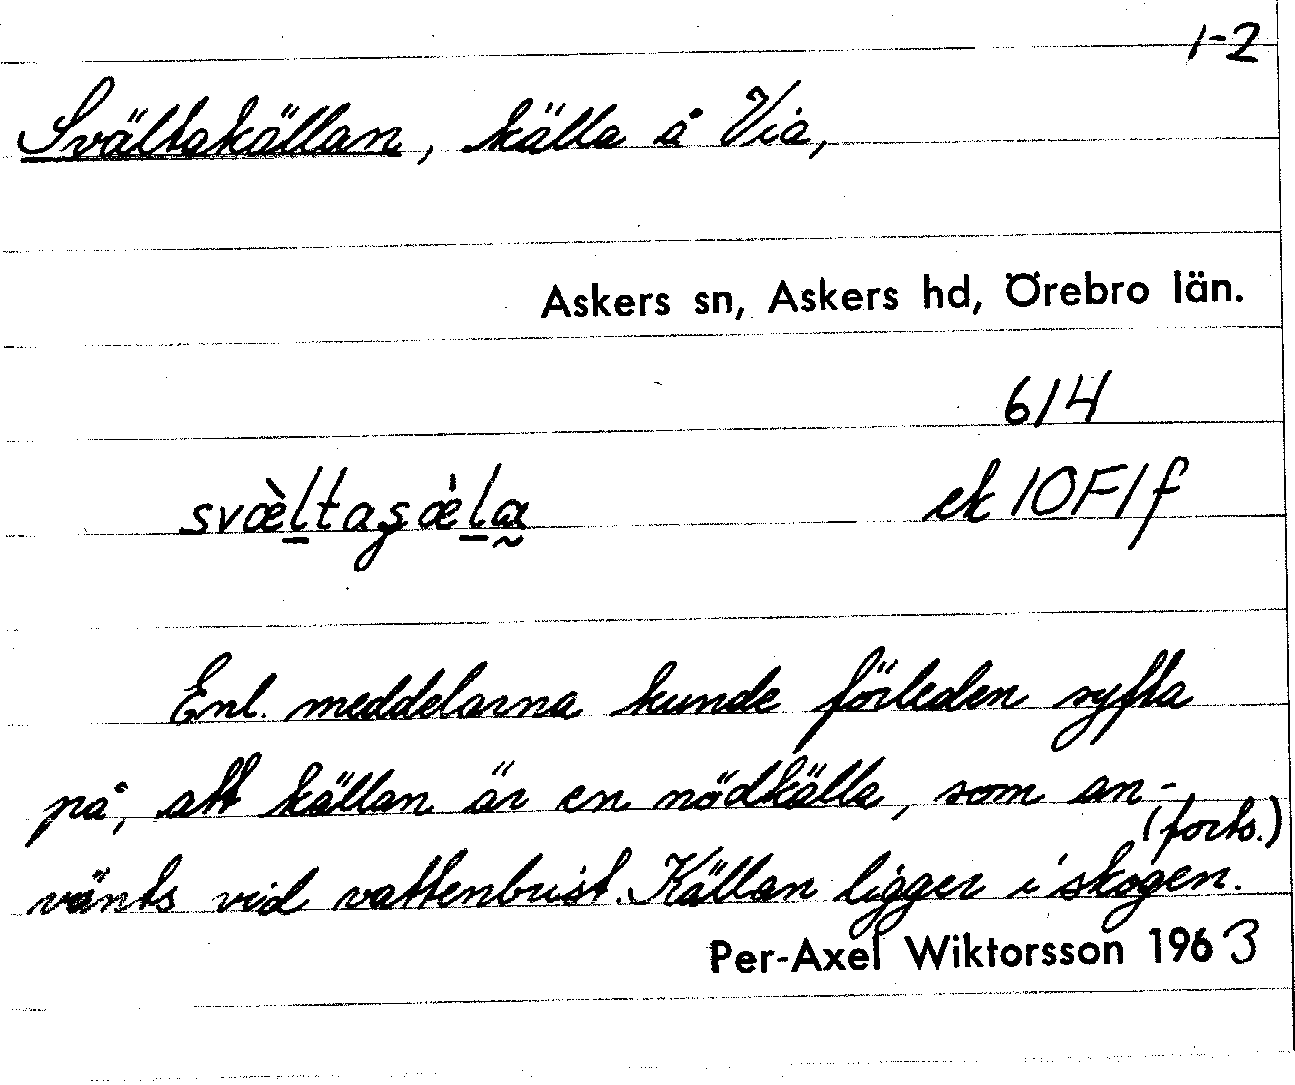 1-2
Svältakällan, källa å Via,
Askers sn, Askers hd, Örebro län.
614
svæ̀ltaşæ̀la ek 10F1f
Enl. meddelarna kunde förleden syfta
på, att källan är en nödkälla, som an-
(forts.)
vänts vid vattenbrist. Källan ligger i skogen.
Per-Axel Wiktorsson 1963